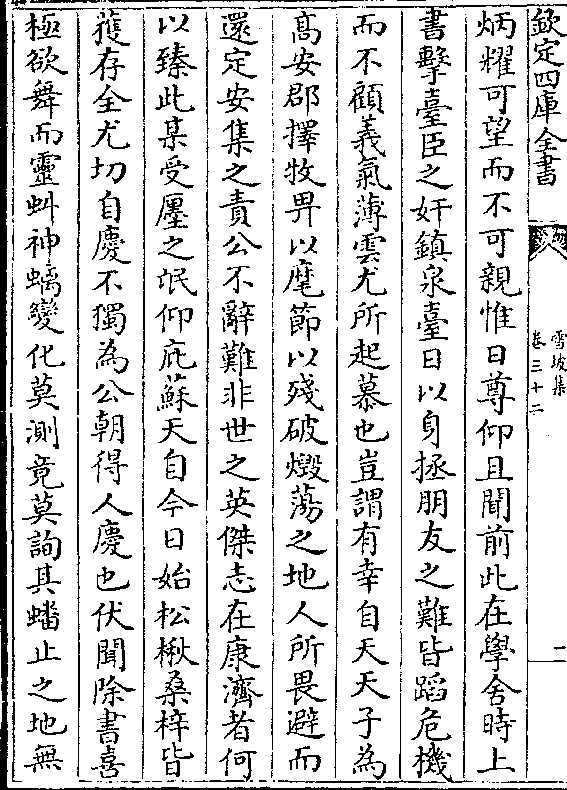 欽定四庫全書
雪坡集
卷三十二
二
炳耀可望而不可親惟日尊仰且聞前此在學舍時上
書擊臺臣之奸鎮泉臺日以身拯朋友之難皆蹈危機
而不顧義氣薄雲尤所起慕也豈謂有幸自天天子為
髙安郡擇牧畀以麾節以殘破燬蕩之地人所畏避而
還定安集之責公不辭難非世之英傑志在康濟者何
以臻此某受廛之氓仰庇蘇天自今日始松楸桑梓皆
獲存全尤切自慶不獨為公朝得人慶也伏聞除書喜
極欲舞而靈虯神螭變化莫測竟莫詢其蟠止之地無